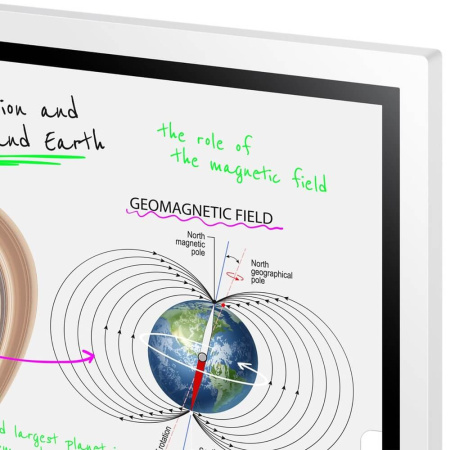 ion and
and Earth
the role of
the magnetic field
GEOMAGNETIC FIELD
North
magnetic
pole
North
geographical
pole
rotation
d largest planet